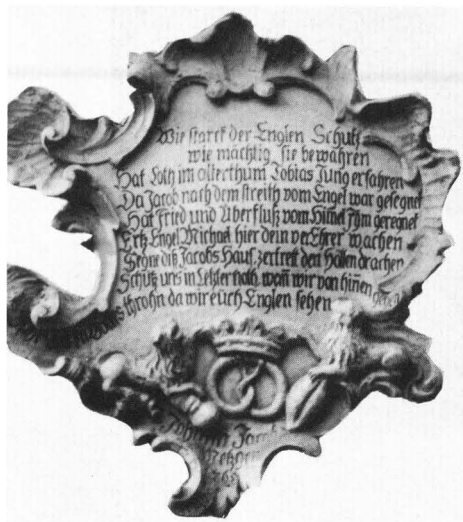 Wie starck der Englen Schutz
wie mächtig sie bewahren
Hat Loth im alterthum Tobias Jung erfahren
Da Jacob nach dem streith vom Engel war gesegnet
Hat Fried und Überfluß vom Himel Jhm geregnet
Ertz Engel Michael hier dein verEhrer wachen
Segne diß Jacobs Hauß, zertret den Höllen drachen
Schütz uns in Letster noth, wan wir von hinen
throhn da wir euch Englen sehen
Johann Jacob
Metzger